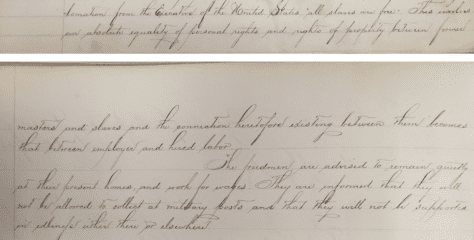 tamation from the Executive of the United States, "all slaves are free." This involves
an absolute equality of personal rights and rights of property between former
masters and slaves and the connection heretofore existing between them becomes
that between employer and hired labor.
The freedmen are advised to remain quietly
at their present homes, and work for wages. They are informed that they will
not be allowed to collect at military posts and that they will not be supported
in idleness either there or elsewhere.